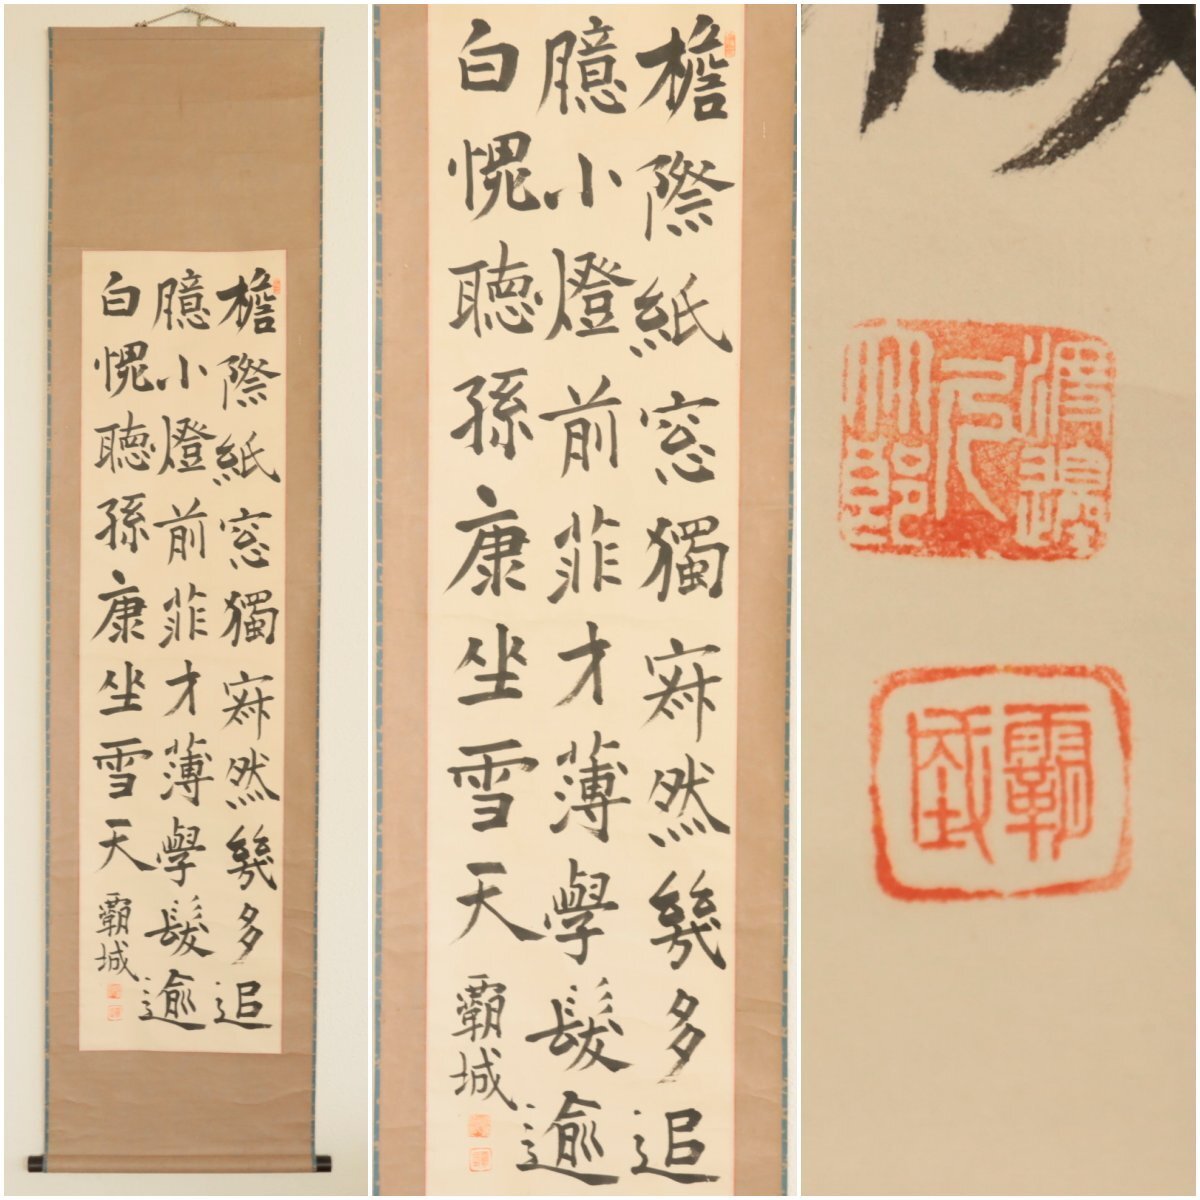 檐際紙窓獨寂然幾多追
臆小燈前菲才薄學髮逾
白愧聴孫康坐雪天
覇城
檐際紙窓獨寂然幾多追
臆小燈前菲才薄學髮逾
白愧聴孫康坐雪天
覇城
霸城